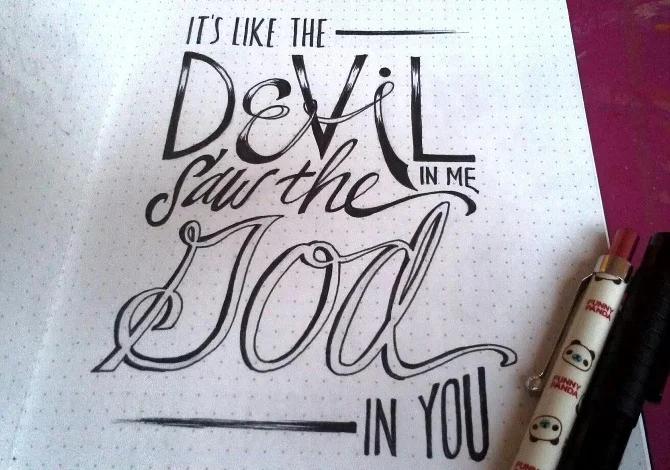 IT'S LIKE THE
DEViL
IN ME
Saw the
God
IN YOU
FUNNY
PANDA
FUNNY
PANDA
FUNNY
PANDA